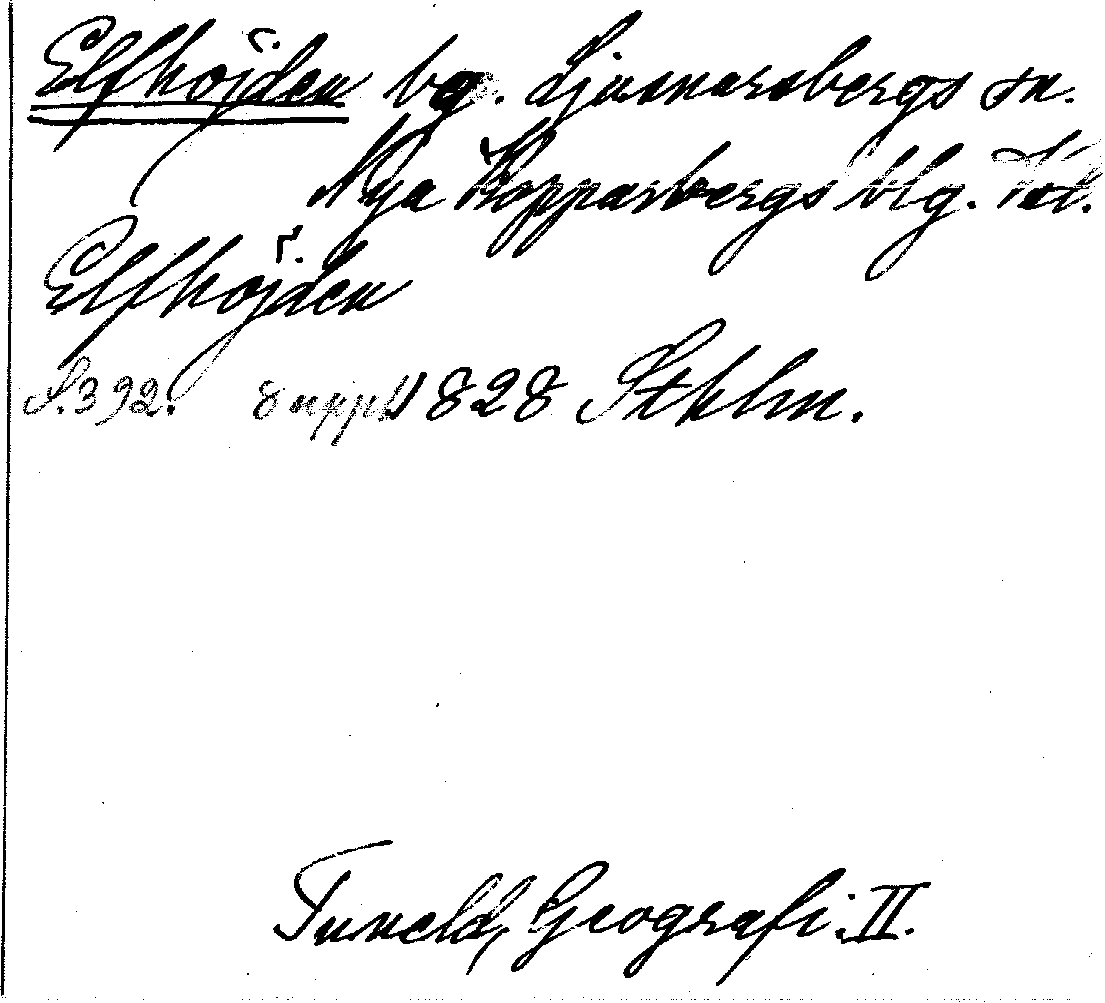 Elfhöjden bg. Ljusnarsbergs sn.
Nya Kopparbergs blg.
Elfhöjden
S. 392. 8 uppl. 1828 Sthlm.
Tuneld, Geografi. II.